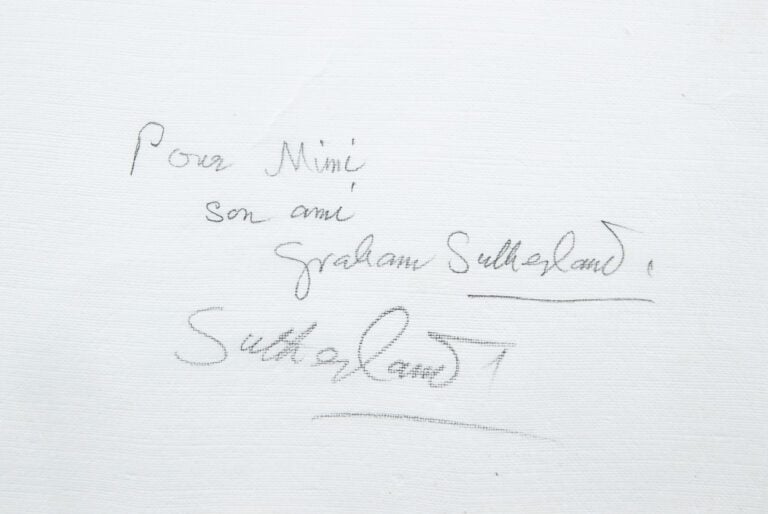 Pour Mimi
son ami
Graham Sutherland.
Sutherland